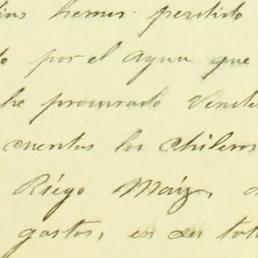 dias hemos perdido
por el agua que
he procurado
cuentas los chileros
Riego Maiz,
gastos, en su tot